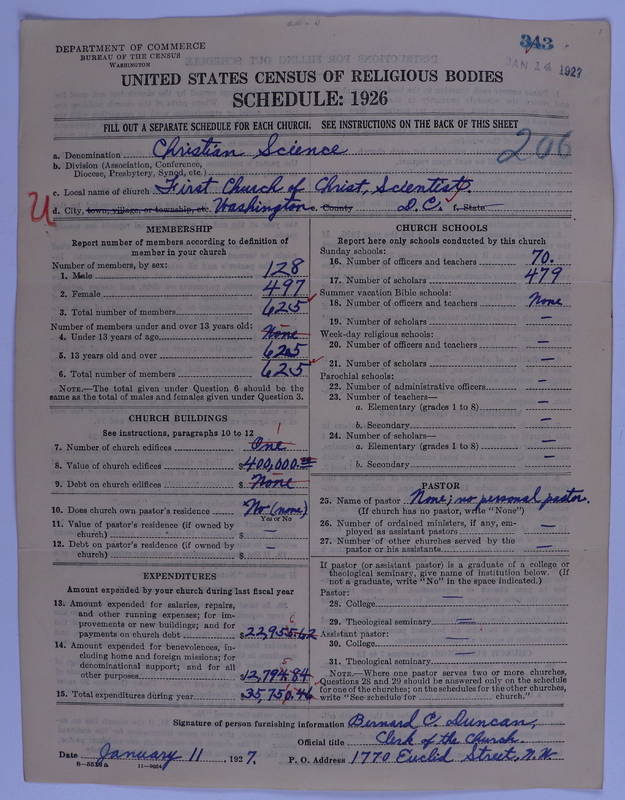 343
JAN 14 1927
DEPARTMENT OF COMMERCE
BUREAU OF THE CENSUS
WASHINGTON
UNITED STATES CENSUS OF RELIGIOUS BODIES
SCHEDULE: 1926
FILL OUT A SEPARATE SCHEDULE FOR EACH CHURCH. SEE INSTRUCTIONS ON THE BACK OF THIS SHEET
206
a. Denomination Christian Science
b. Division (Association, Conference,
Diocese, Presbytery, Synod, etc.)
c. Local name of church First Church of Christ, Scientist.
U
d. City, town, village, or township, etc. Washington e. County D.C. f. State
MEMBERSHIP
Report number of members according to definition of
member in your church
Number of members, by sex:
1. Male 128
2. Female 497
3. Total number of members 625
Number of members under and over 13 years old:
4. Under 13 years of age None
5. 13 years old and over 625
6. Total number of members 625
NOTE.—The total given under Question 6 should be the
same as the total of males and females given under Question 3.
CHURCH BUILDINGS
See instructions, paragraphs 10 to 12
1
7. Number of church edifices One
8. Value of church edifices $400,000.00
9. Debt on church edifices $ None
10. Does church own pastor's residence No (none)
Yes or No
11. Value of pastor's residence (if owned by
church) $ —
12. Debt on pastor's residence (if owned by
church) $ —
EXPENDITURES
Amount expended by your church during last fiscal year
13. Amount expended for salaries, repairs,
and other running expenses; for im-
provements or new buildings; and for
payments on church debt $22,955.62
6
14. Amount expended for benevolences, in-
cluding home and foreign missions; for
denominational support; and for all
other purposes 12,794.84
5
15. Total expenditures during year $35,750.46
CHURCH SCHOOLS
Report here only schools conducted by this church
Sunday schools:
16. Number of officers and teachers 70.
17. Number of scholars 479
Summer vacation Bible schools:
18. Number of officers and teachers None
19. Number of scholars —
Week-day religious schools:
20. Number of officers and teachers —
21. Number of scholars —
Parochial schools:
22. Number of administrative officers —
23. Number of teachers—
a. Elementary (grades 1 to 8) —
b. Secondary —
24. Number of scholars—
a. Elementary (grades 1 to 8) —
b. Secondary —
PASTOR
25. Name of pastor None; no personal pastor.
(If church has no pastor, write "None")
26. Number of ordained ministers, if any, em-
ployed as assistant pastors —
27. Number of other churches served by the
pastor or his assistants —
If pastor (or assistant pastor) is a graduate of a college or
theological seminary, give name of institution below. (If
not a graduate, write "No" in the space indicated.)
Pastor:
28. College —
29. Theological seminary —
Assistant pastor:
30. College —
31. Theological seminary —
NOTE.—Where one pastor serves two or more churches,
Questions 28 and 29 should be answered only on the schedule
for one of the churches; on the schedules for the other churches,
write "See schedule for church."
Signature of person furnishing information Bernard C. Duncan,
Official title Clerk of the Church.
Date January 11, 1927. P. O. Address 1770 Euclid Street, N.W.
8—5518a 11—9034